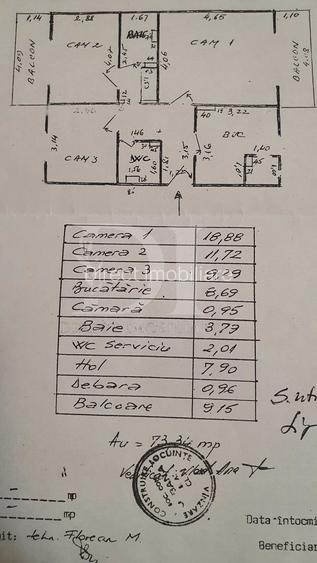 1,14 2,88 1,67 4,65 1,10
BAIE
CAM 2 CAM 1
BALCON 4,09 2,45 4,07 4,06 BALCON 4,18
40 3,22
3,14 146 BUC
3,15 3,16 1,40
CAM 3 WC 45
1,56 1,60
Camera 1 18,88
Camera 2 11,72
Camera 3
Bucătărie 8,69
Cămară 0,95
Baie 3,79
WC Serviciu 2,01
Hol 7,90
Debara 0,96
Balcoane 9,15
directimobiliare
Au = mp
CONSTRUIRE LOCUINTE VINZARE
mp
mp
Data întocmi
it: tehn. Florean M.
Beneficiar